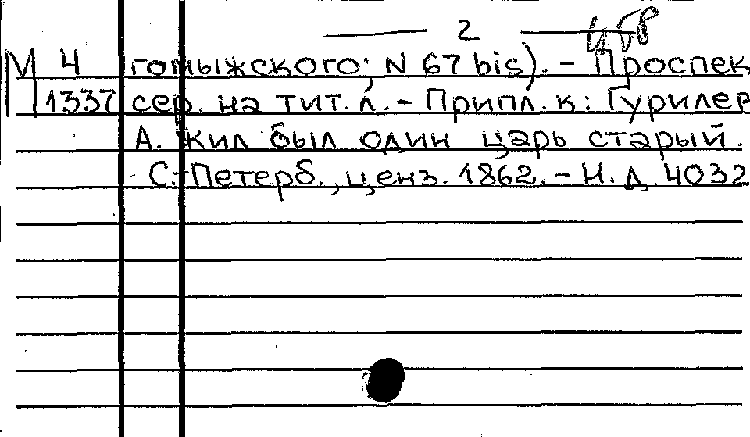 2
М 4 гомыжского; N 67 bis). - Проспек
1337 сер. на тит. л. - Припл. к: Гурилев
А. Жил был один царь старый.
С.-Петерб., ценз. 1862. - Н. д. 4032